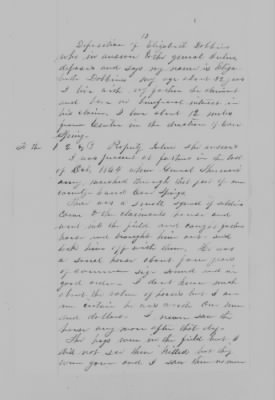 13
Deposition of Elizabeth Dobbins
who in answer to the general Interr
deposes and says my name is Eliza-
beth Dobbins my age about 32 years
I live with my father the claimant
and have no beneficial interest in
his claim, I live about 12 miles
from Center in the direction of Cave
Spring.
To the 1 2 & 3 Reputy Inter she answers
I was present at fathers in the last
of Oct, 1864 when General Sherman's
army marched through that part of our
county - toward Cave Springs
There was a small squad of soldiers
come to the claimants house and
went into the field and caught fathers
horse and brought him out and
took him off with them, He was
a sorrel horse about four years
of common size sound and in
good order. I dont know much
about the value of horses but I am
certain he was worth One hun
dred dollars I never saw the
horse any more after that day.
The hogs were in the field but I
did not see them killed but they
were gone and I saw them no more